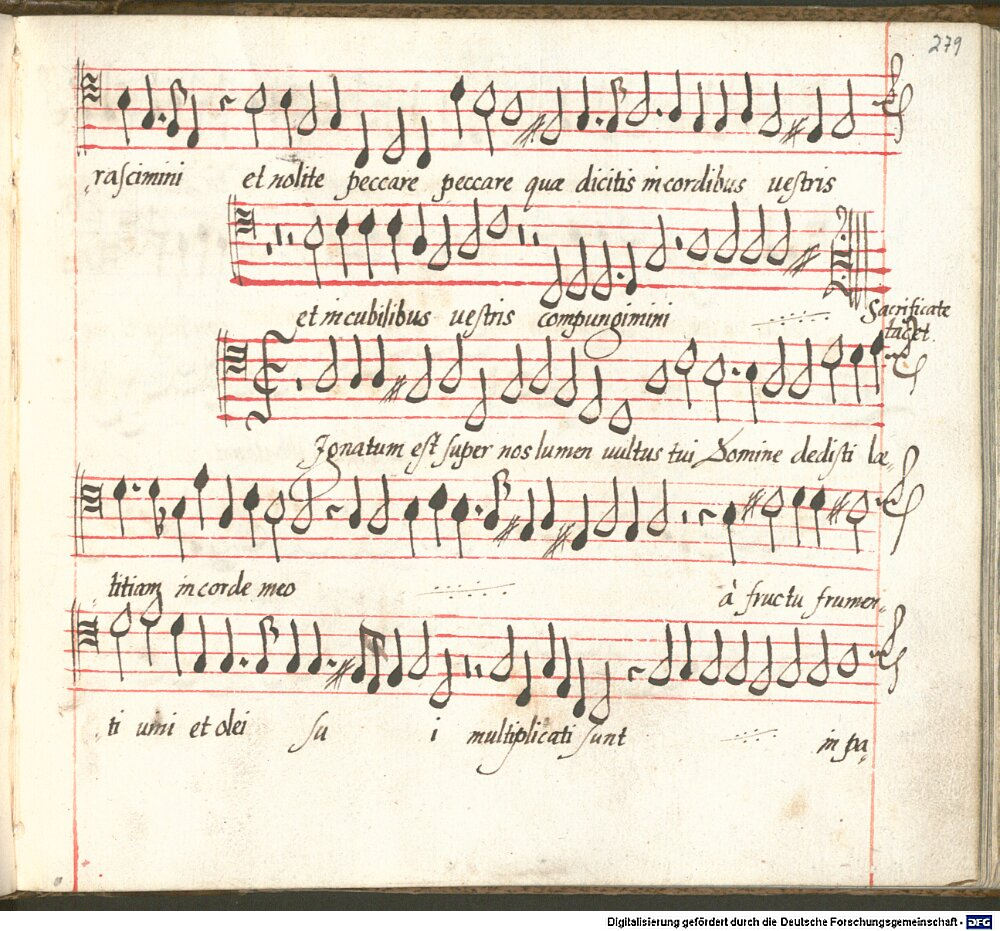 279
rascimini et nolite peccare peccare quæ dicitis in cordibus uestris
et in cubilibus uestris compungimini
Sacrificate
tacet.
Ignatum est super nos lumen uultus tui Domine dedisti læ
titiam in corde meo à fructu frumen
ti uini et olei su i multiplicati sunt in pa
Digitalisierung gefördert durch die Deutsche Forschungsgemeinschaft - DFG